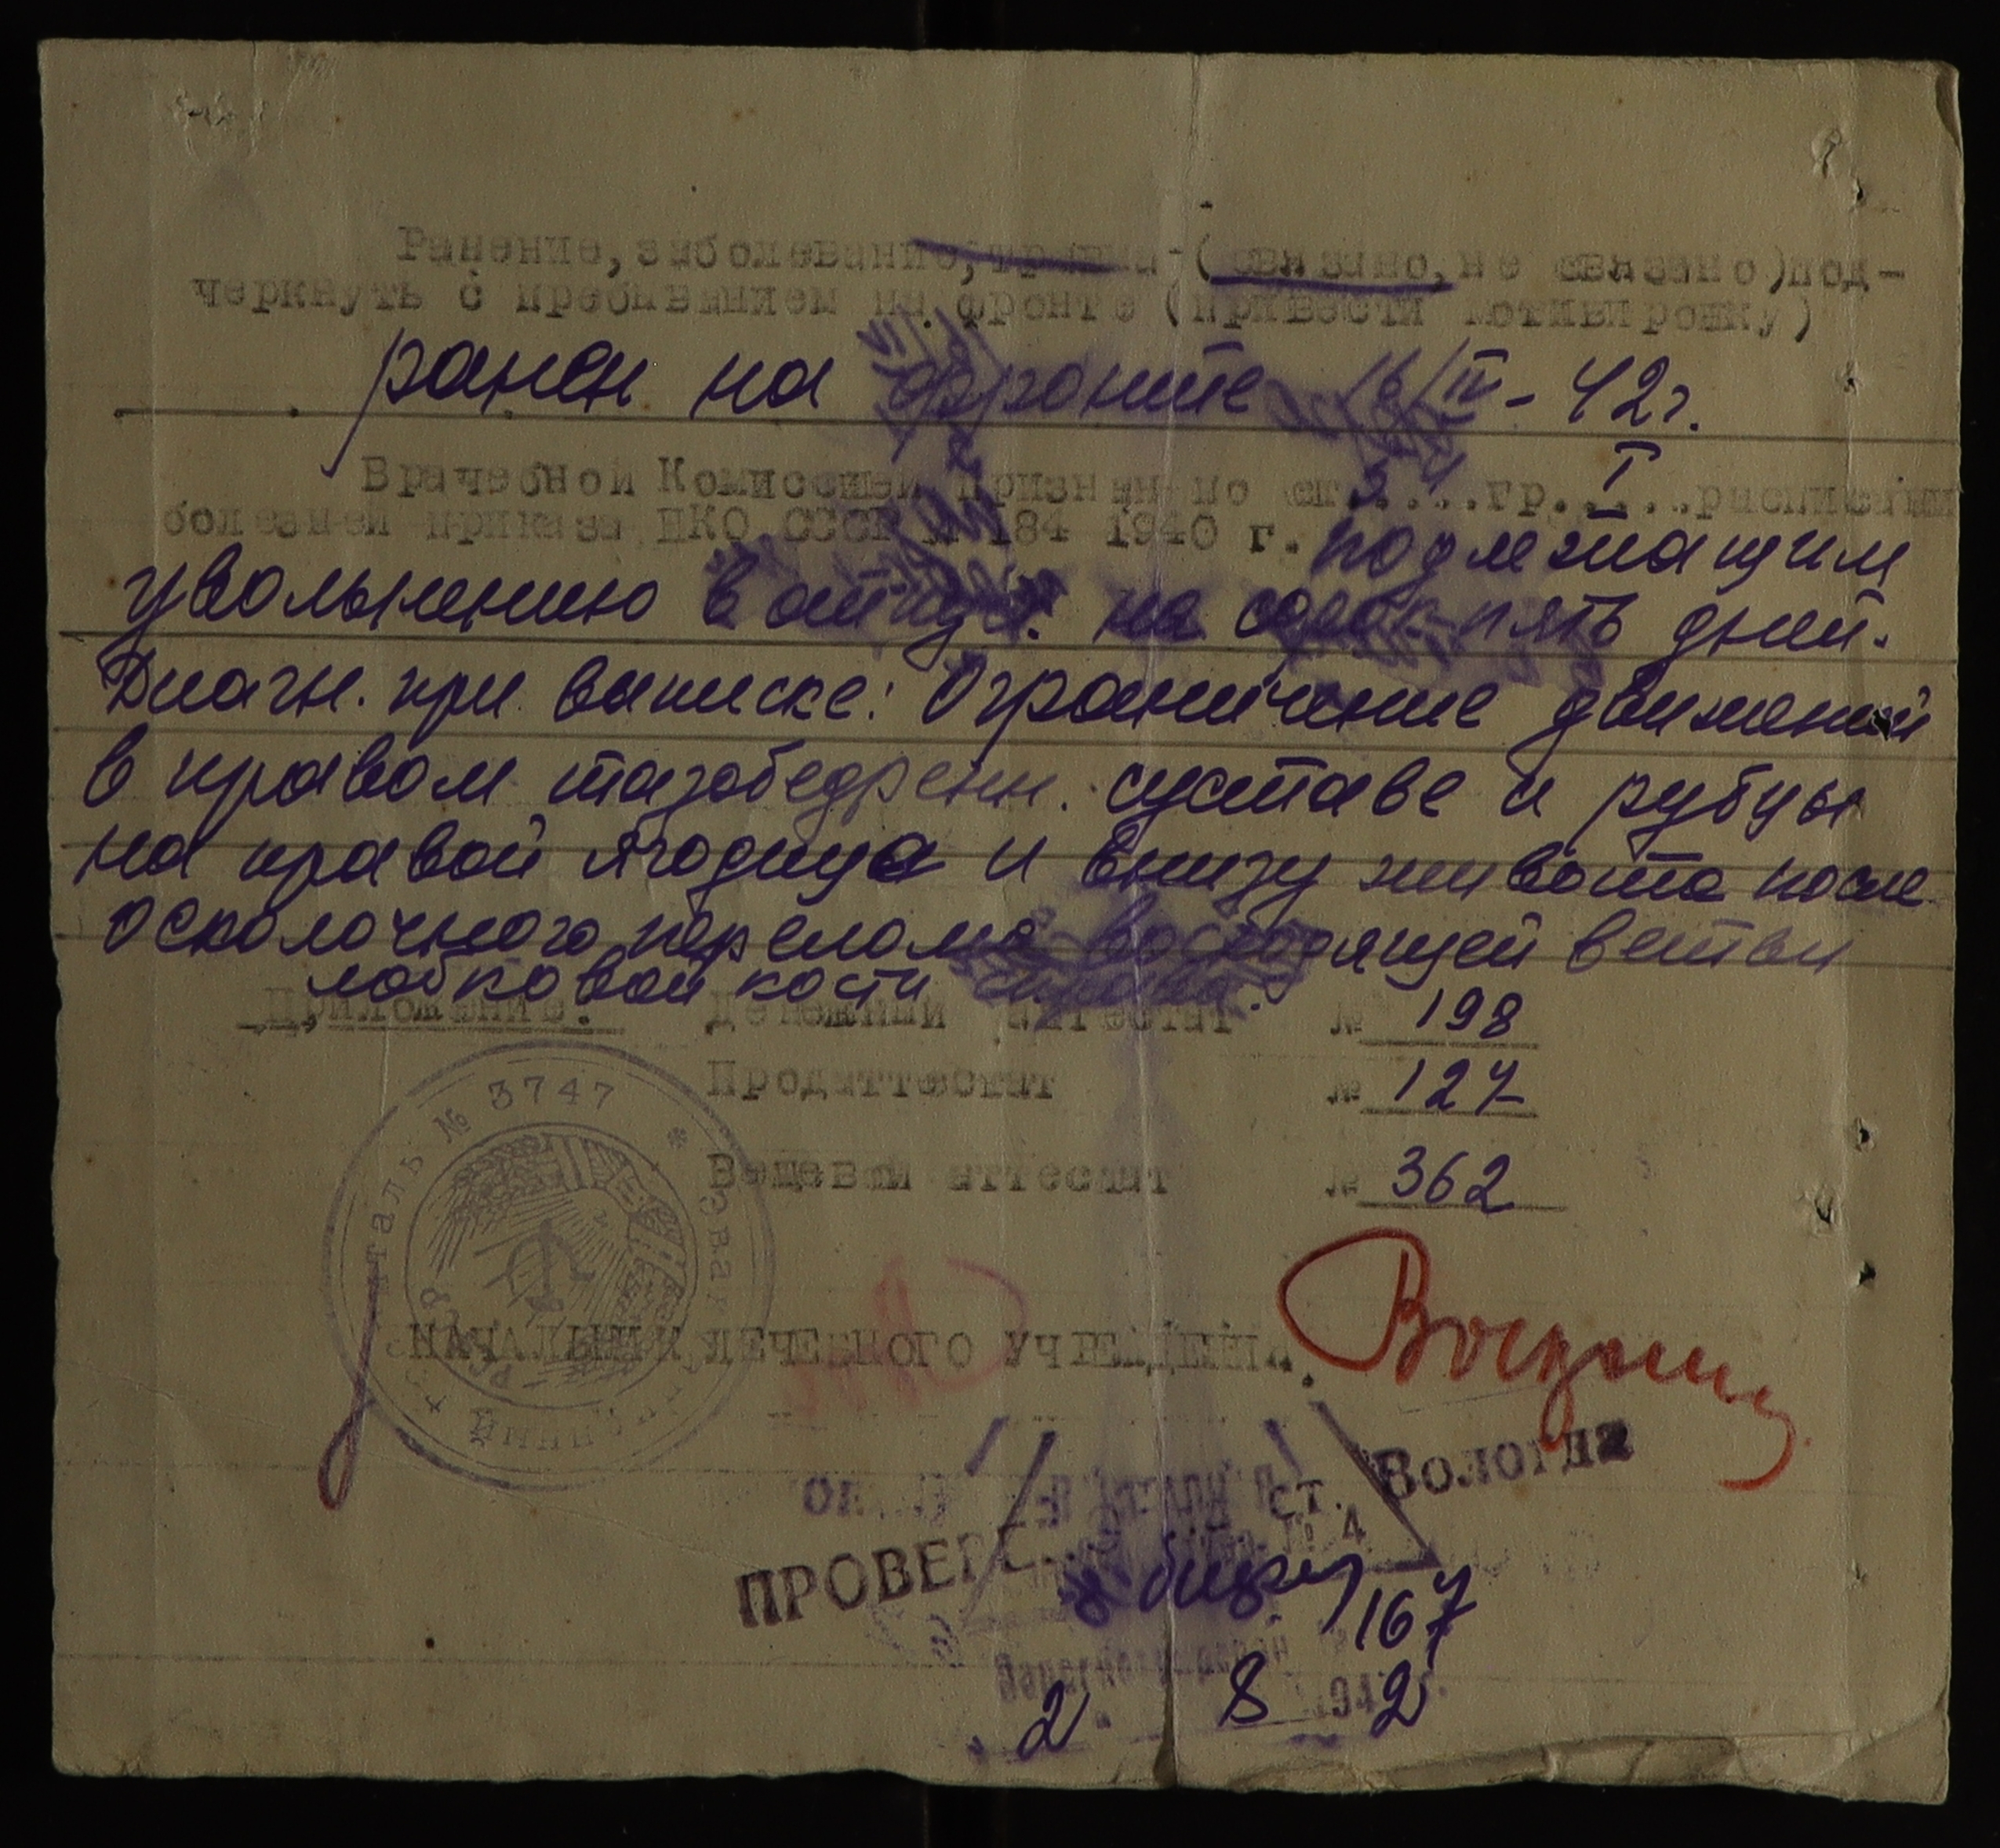 Ранение, заболевание, травма - (связано, не связано) под-
черкнуть с пребыванием на фронте (привести мотивировку)
ранен на фронте 16/IV - 42 г.
Врачебной Комиссией признан по ст. 3 .....гр. I .....расписания
болезней приказа НКО СССР № 184 1940 г. подлежащим
увольнению в отпуск на сорок пять дней.
Диагн. при выписке: Ограничение движений
в правом тазобедренн. суставе и рубцы
на правой ягодице и внизу живота после
осколочного перелома восходящей ветви
лобковой кости справа.
Приложение: Денежный аттестат № 198
Продаттестат № 127
Вещевой аттестат № 362
госпиталь № 3747 * Эвакуационный
НАЧАЛЬНИК ЛЕЧЕБНОГО УЧРЕЖДЕНИЯ
ст. Вологда
ПРОВЕРЕНО
4
167
2 8 1942